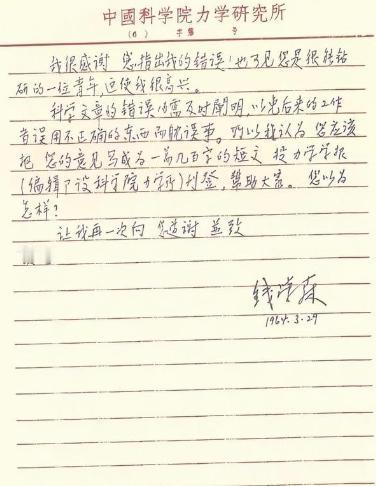 中國科学院力学研究所
(  ) 字第 号
我很感谢 您指出我的错误！也可见您是很能钻
研的一位青年，这使我很高兴。
科学文章的错误必需及时阐明，以免后来的工作
者误用不正确的东西而耽误事。所以我认为 您应该
把 您的意见写成为一篇几百字的短文 投力学学报
(编辑部设科学院力学所)刊登，帮助大家。您以为
怎样？
让我再一次向 您道谢 並致
钱学森
1964.3.29